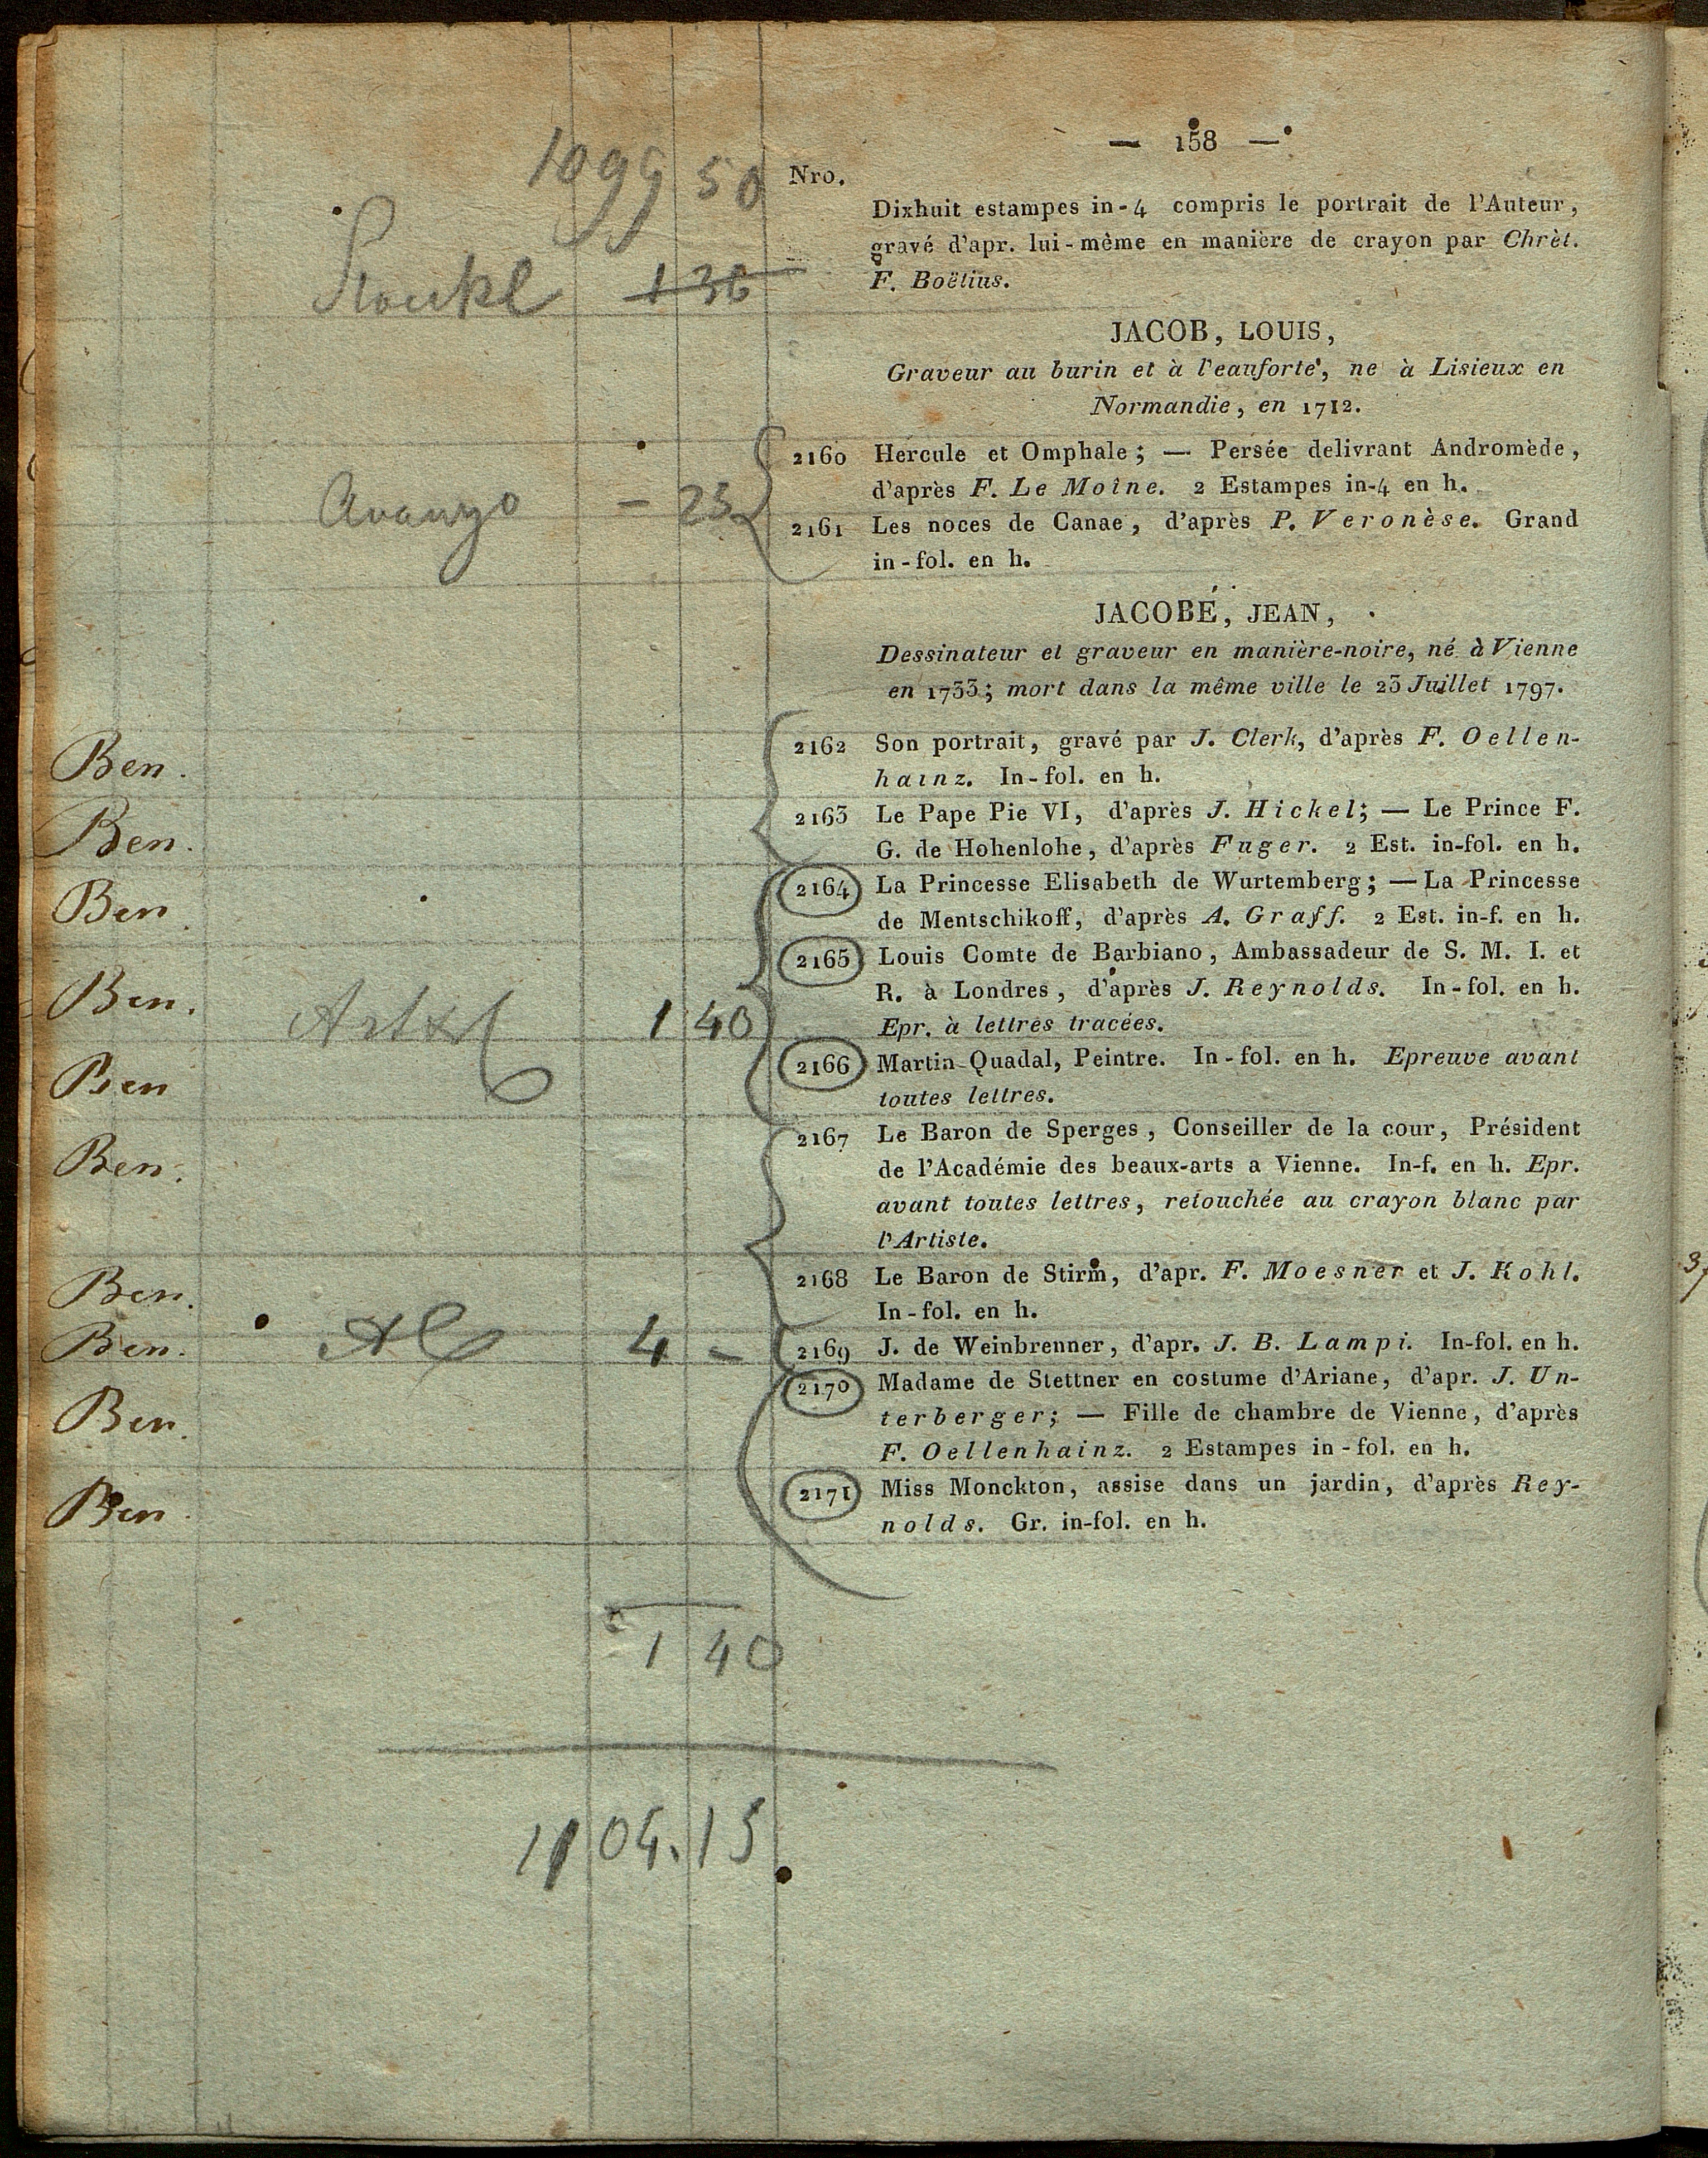 — 158 —
1099 50
Nro.
Dixhuit estampes in-4 compris le portrait de l'Auteur,
gravé d'apr. lui-même en manière de crayon par Chrèt.
F. Boëtius.
1 36
JACOB, LOUIS,
Graveur au burin et à l'eauforte, ne à Lisieux en
Normandie, en 1712.
2160 Hercule et Omphale; — Persée delivrant Andromède,
d'après F. Le Moîne. 2 Estampes in-4 en h.
Avanzo — 25
2161 Les noces de Canae, d'après P. Veronèse. Grand
in-fol. en h.
JACOBÉ, JEAN,
Dessinateur et graveur en manière-noire, né à Vienne
en 1733; mort dans la même ville le 23 Juillet 1797.
Ben. 2162 Son portrait, gravé par J. Clerk, d'après F. Oellen-
hainz. In-fol. en h.
Ben. 2163 Le Pape Pie VI, d'après J. Hickel; — Le Prince F.
G. de Hohenlohe, d'après Fuger. 2 Est. in-fol. en h.
Ben. 2164 La Princesse Elisabeth de Wurtemberg; — La Princesse
de Mentschikoff, d'après A. Graff. 2 Est. in-f. en h.
Ben. 2165 Louis Comte de Barbiano, Ambassadeur de S. M. I. et
R. à Londres, d'après J. Reynolds. In-fol. en h.
1 40 Epr. à lettres tracées.
Ben 2166 Martin Quadal, Peintre. In-fol. en h. Epreuve avant
toutes lettres.
Ben. 2167 Le Baron de Sperges, Conseiller de la cour, Président
de l'Académie des beaux-arts a Vienne. In-f. en h. Epr.
avant toutes lettres, retouchée au crayon blanc par
l'Artiste.
Ben. 2168 Le Baron de Stirm, d'apr. F. Moesner et J. Kohl.
In-fol. en h.
Ben. 4 — 2169 J. de Weinbrenner, d'apr. J. B. Lampi. In-fol. en h.
Ben. 2170 Madame de Stettner en costume d'Ariane, d'apr. J. Un-
terberger; — Fille de chambre de Vienne, d'après
F. Oellenhainz. 2 Estampes in-fol. en h.
Ben. 2171 Miss Monckton, assise dans un jardin, d'après Rey-
nolds. Gr. in-fol. en h.
1 40
1104.15